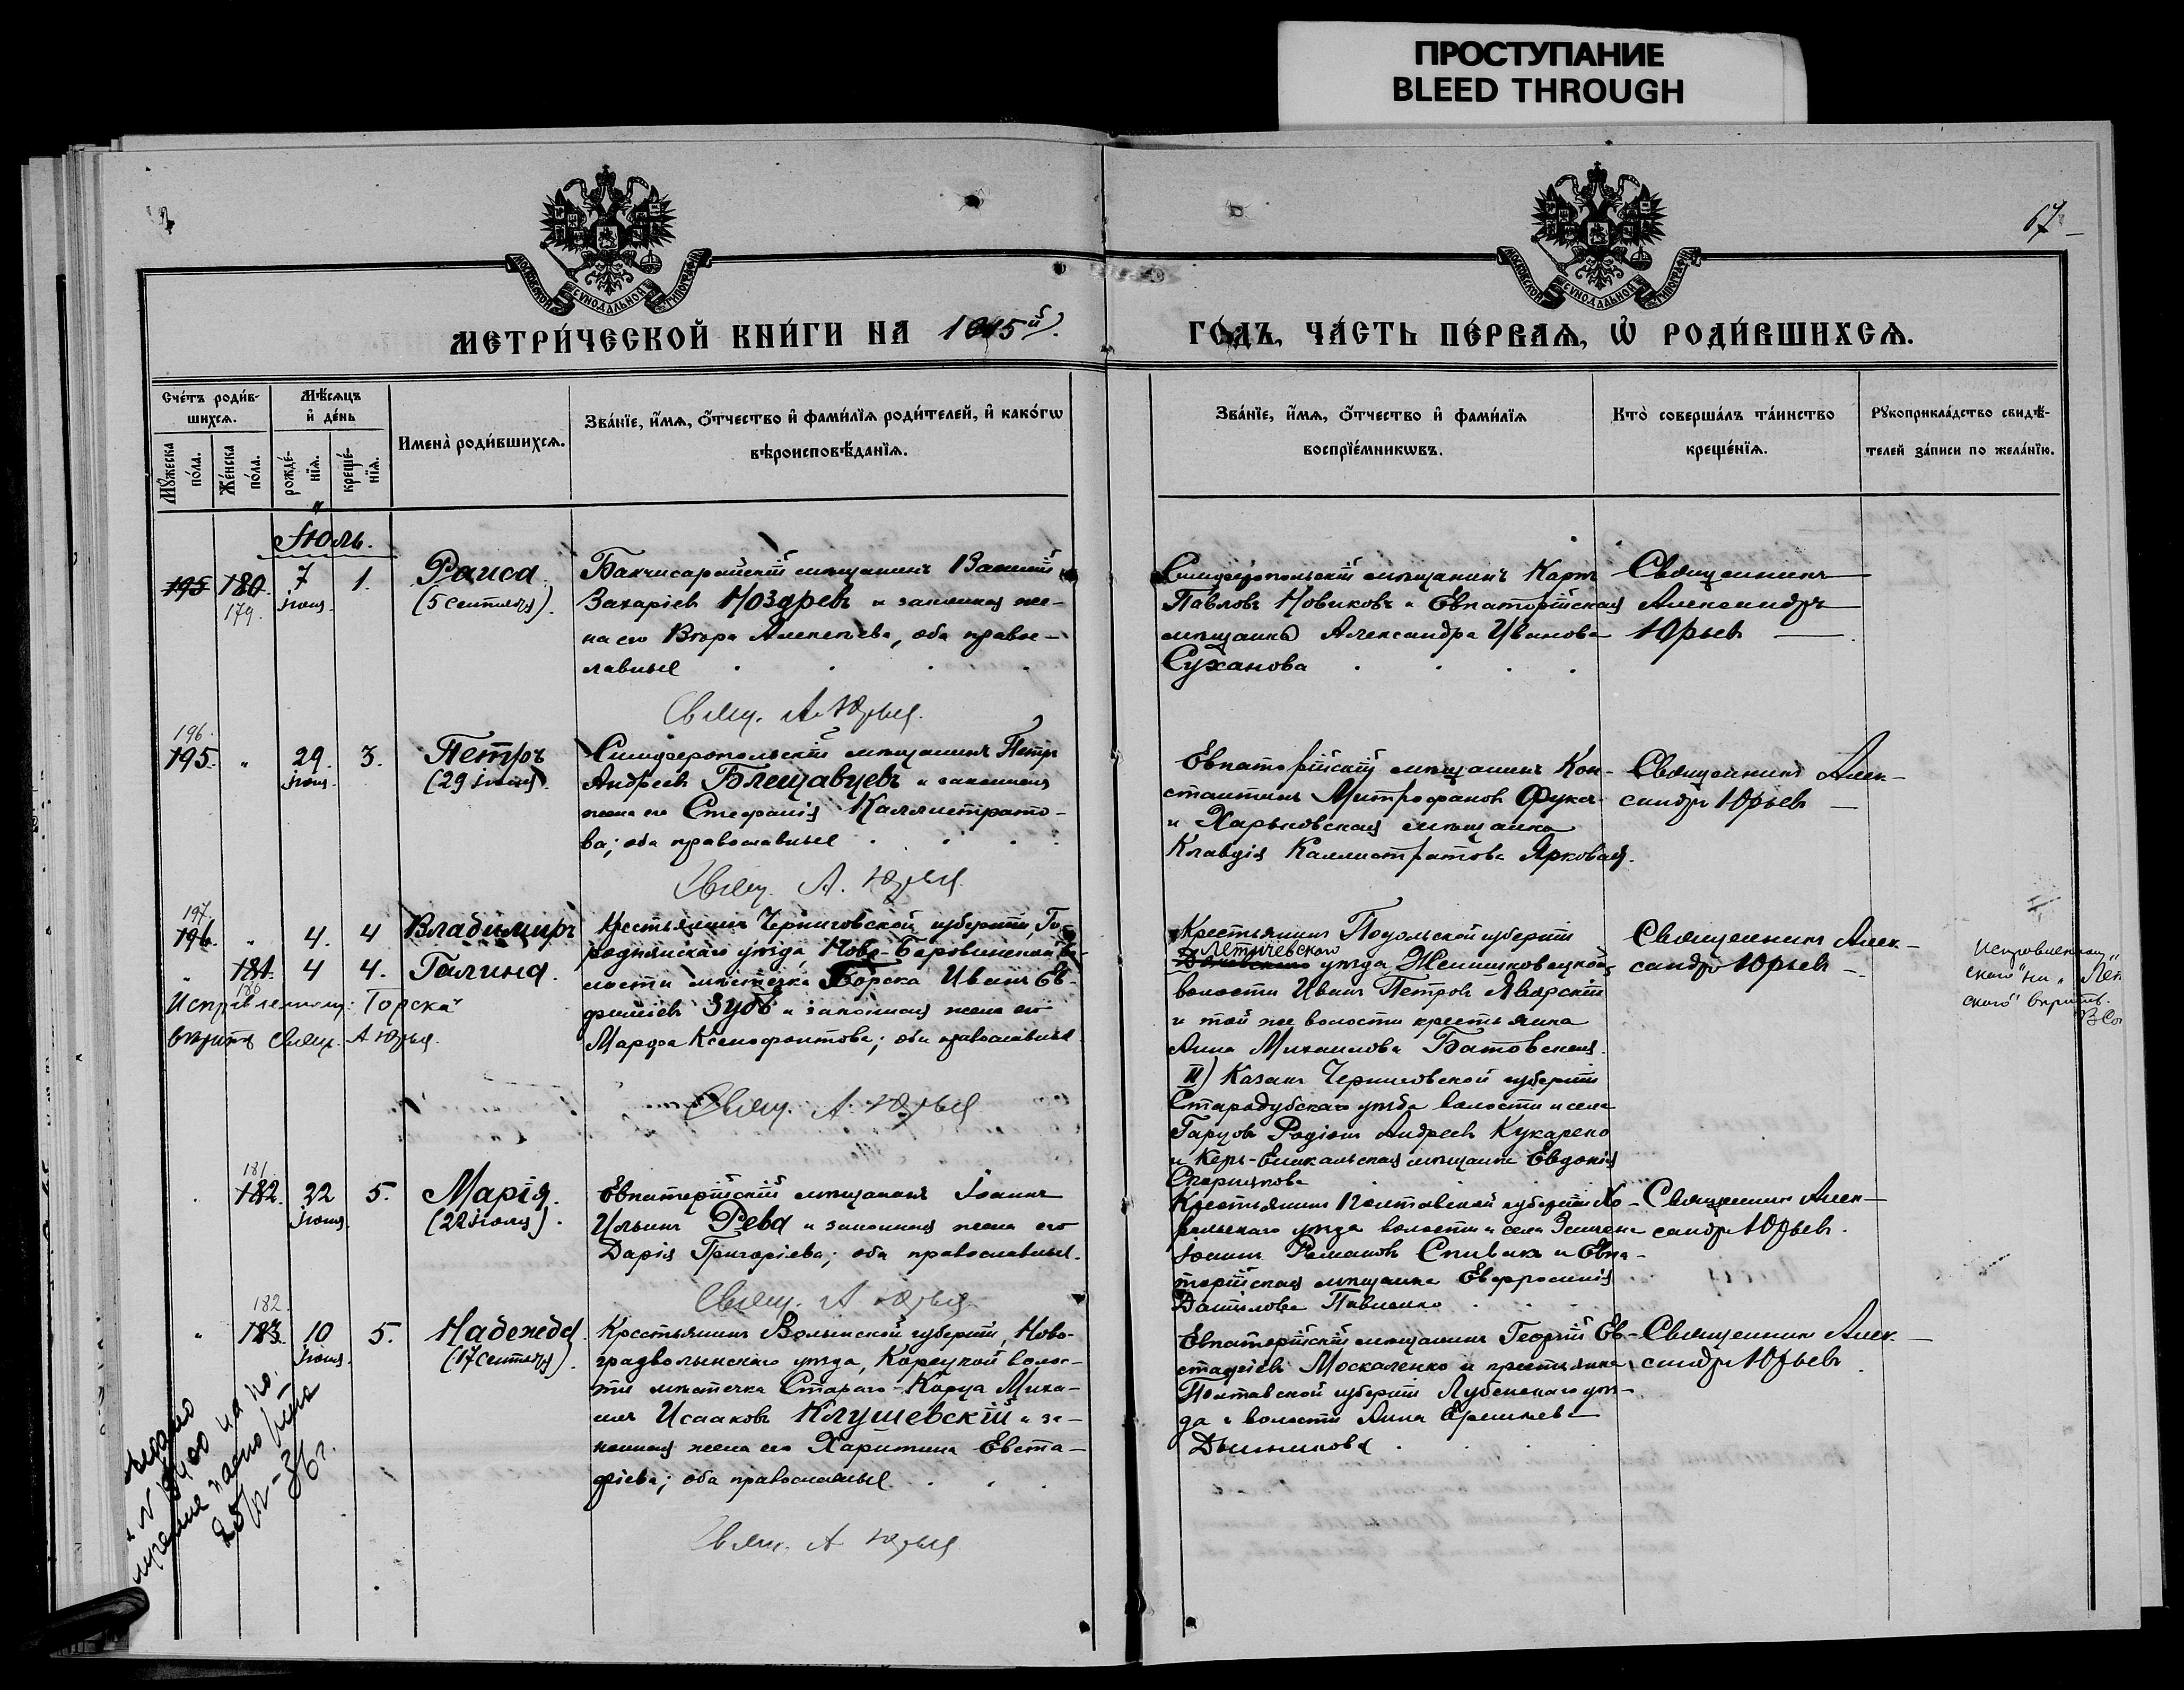 ПРОСТУПАНИЕ
BLEED THROUGH
67
МОСКОВСКОЙ СѴНОДАЛЬНОЙ ТИПОГРАФІИ
МОСКОВСКОЙ СѴНОДАЛЬНОЙ ТИПОГРАФІИ
МЕТРИ́ЧЕСКОЙ КНИ́ГИ НА 1915й
ГО́ДЪ, ЧА́СТЬ ПЕ́РВАѦ, Ѿ РОДИ́ВШИХСѦ.
Сче́тъ роди́в-
шихсѧ.
Мѣ́сѧцъ
и҆ де́нь
Мꙋ́жеска
по́ла.
Же́нска
по́ла.
рожде́-
нїѧ.
креще́-
нїѧ.
Имена̀ роди́вшихсѧ.
Зва́нїе, и҆́мѧ, ѻ҆́тчество и҆ фами́лїѧ роди́телей, и҆ како́гѡ
вѣроисповѣ́данїѧ.
Зва́нїе, и҆́мѧ, ѻ҆́тчество и҆ фами́лїѧ
воспрїе́мникѡвъ.
Кто̀ соверша́лъ та́инство
креще́нїѧ.
Рꙋкоприкла́дство свидѣ́-
телей за́писи по жела́нїю.
Іюль.
195 180. 7 1. Раиса
179. іюня. (5 сентября).
Бахчисарайскій мѣщанинъ Василій
Захаріевъ Ноздревъ и законная же-
на его Вѣра Алексѣева, оба право-
славные
Свящ. А. Юрьев
Симферопольскій мѣщанинъ Карпъ
Павловъ Новиковъ и Евпаторійская
мѣщанка Александра Иванова
Суханова
Священникъ
Александръ
Юрьевъ
196.
195. " 29. 3. Петръ
іюня. (29 іюня).
Симферопольскій мѣщанинъ Петръ
Андреевъ Блещавцевъ и законная
жена его Стефанія Каллистрато-
ва; оба православные
Свящ. А. Юрьев
Евпаторійскій мѣщанинъ Кон-
стантинъ Митрофановъ Фуксъ
и Харьковская мѣщанка
Клавдія Каллистратова Яркова
Священникъ Алек-
сандръ Юрьевъ
197.
196. " 4. 4 Владимиръ
" 181. 4 4. Галина.
180
Исправленному: "Горска"
вѣрить Свящ. А Юрьев.
Крестьянинъ Черниговской губерніи, Го-
роднянскаго уѣзда, Ново-Боровичской во-
лости мѣстечка Горска Иванъ Ев-
фиміевъ Зубъ и законная жена его
Марфа Ксенофонтова; оба православные
Свящ. А. Юрьев
Крестьянинъ Подольской губерніи
Летичевскаго
уѣзда
волости Иванъ Петровъ Яворскій
и той же волости крестьянка
Анна Михаилова Батовская.
II) Казакъ Черниговской губерніи
Стародубскаго уѣзда волости и села
Гарцовъ Родіонъ Андреевъ Кукареко
и Керчь-Еникальская мѣщанка Евдокія
Священникъ Алек-
сандръ Юрьевъ
Исправленному
скаго" на "Лет
скаго" вѣрить.
181.
182. 22 5. Марія.
іюня. (22 іюля).
Евпаторійскій мѣщанинъ Іоаннъ
Ильинъ Рева и законная жена его
Дарія Григоріева; оба православные.
Свящ. А Юрьев
Крестьянинъ Полтавской губерніи Хо-
рольскаго уѣзда волости и села
Іоаннъ Романовъ Спивакъ и Евпа-
торійская мѣщанка Евфросинія
Даніилова Павленко
Священникъ Алек-
сандръ Юрьевъ.
182.
" 183. 10 5. Надежда
іюня. (17 сентября).
Крестьянинъ Волынской губерніи, Ново-
градволынскаго уѣзда, Корецкой волос-
ти мѣстечка Стараго-Корца Миха-
илъ Исааковъ Клушевскій и за-
конная жена его Харитина Евста-
фіева; оба православные
Свящ. А Юрьев
Евпаторійскій мѣщанинъ Георгій Ев-
стафіевъ Москаленко и крестьянка
Полтавской губерніи Лубенскаго уѣз-
да и волости Анна
Священникъ Алек-
сандръ Юрьевъ